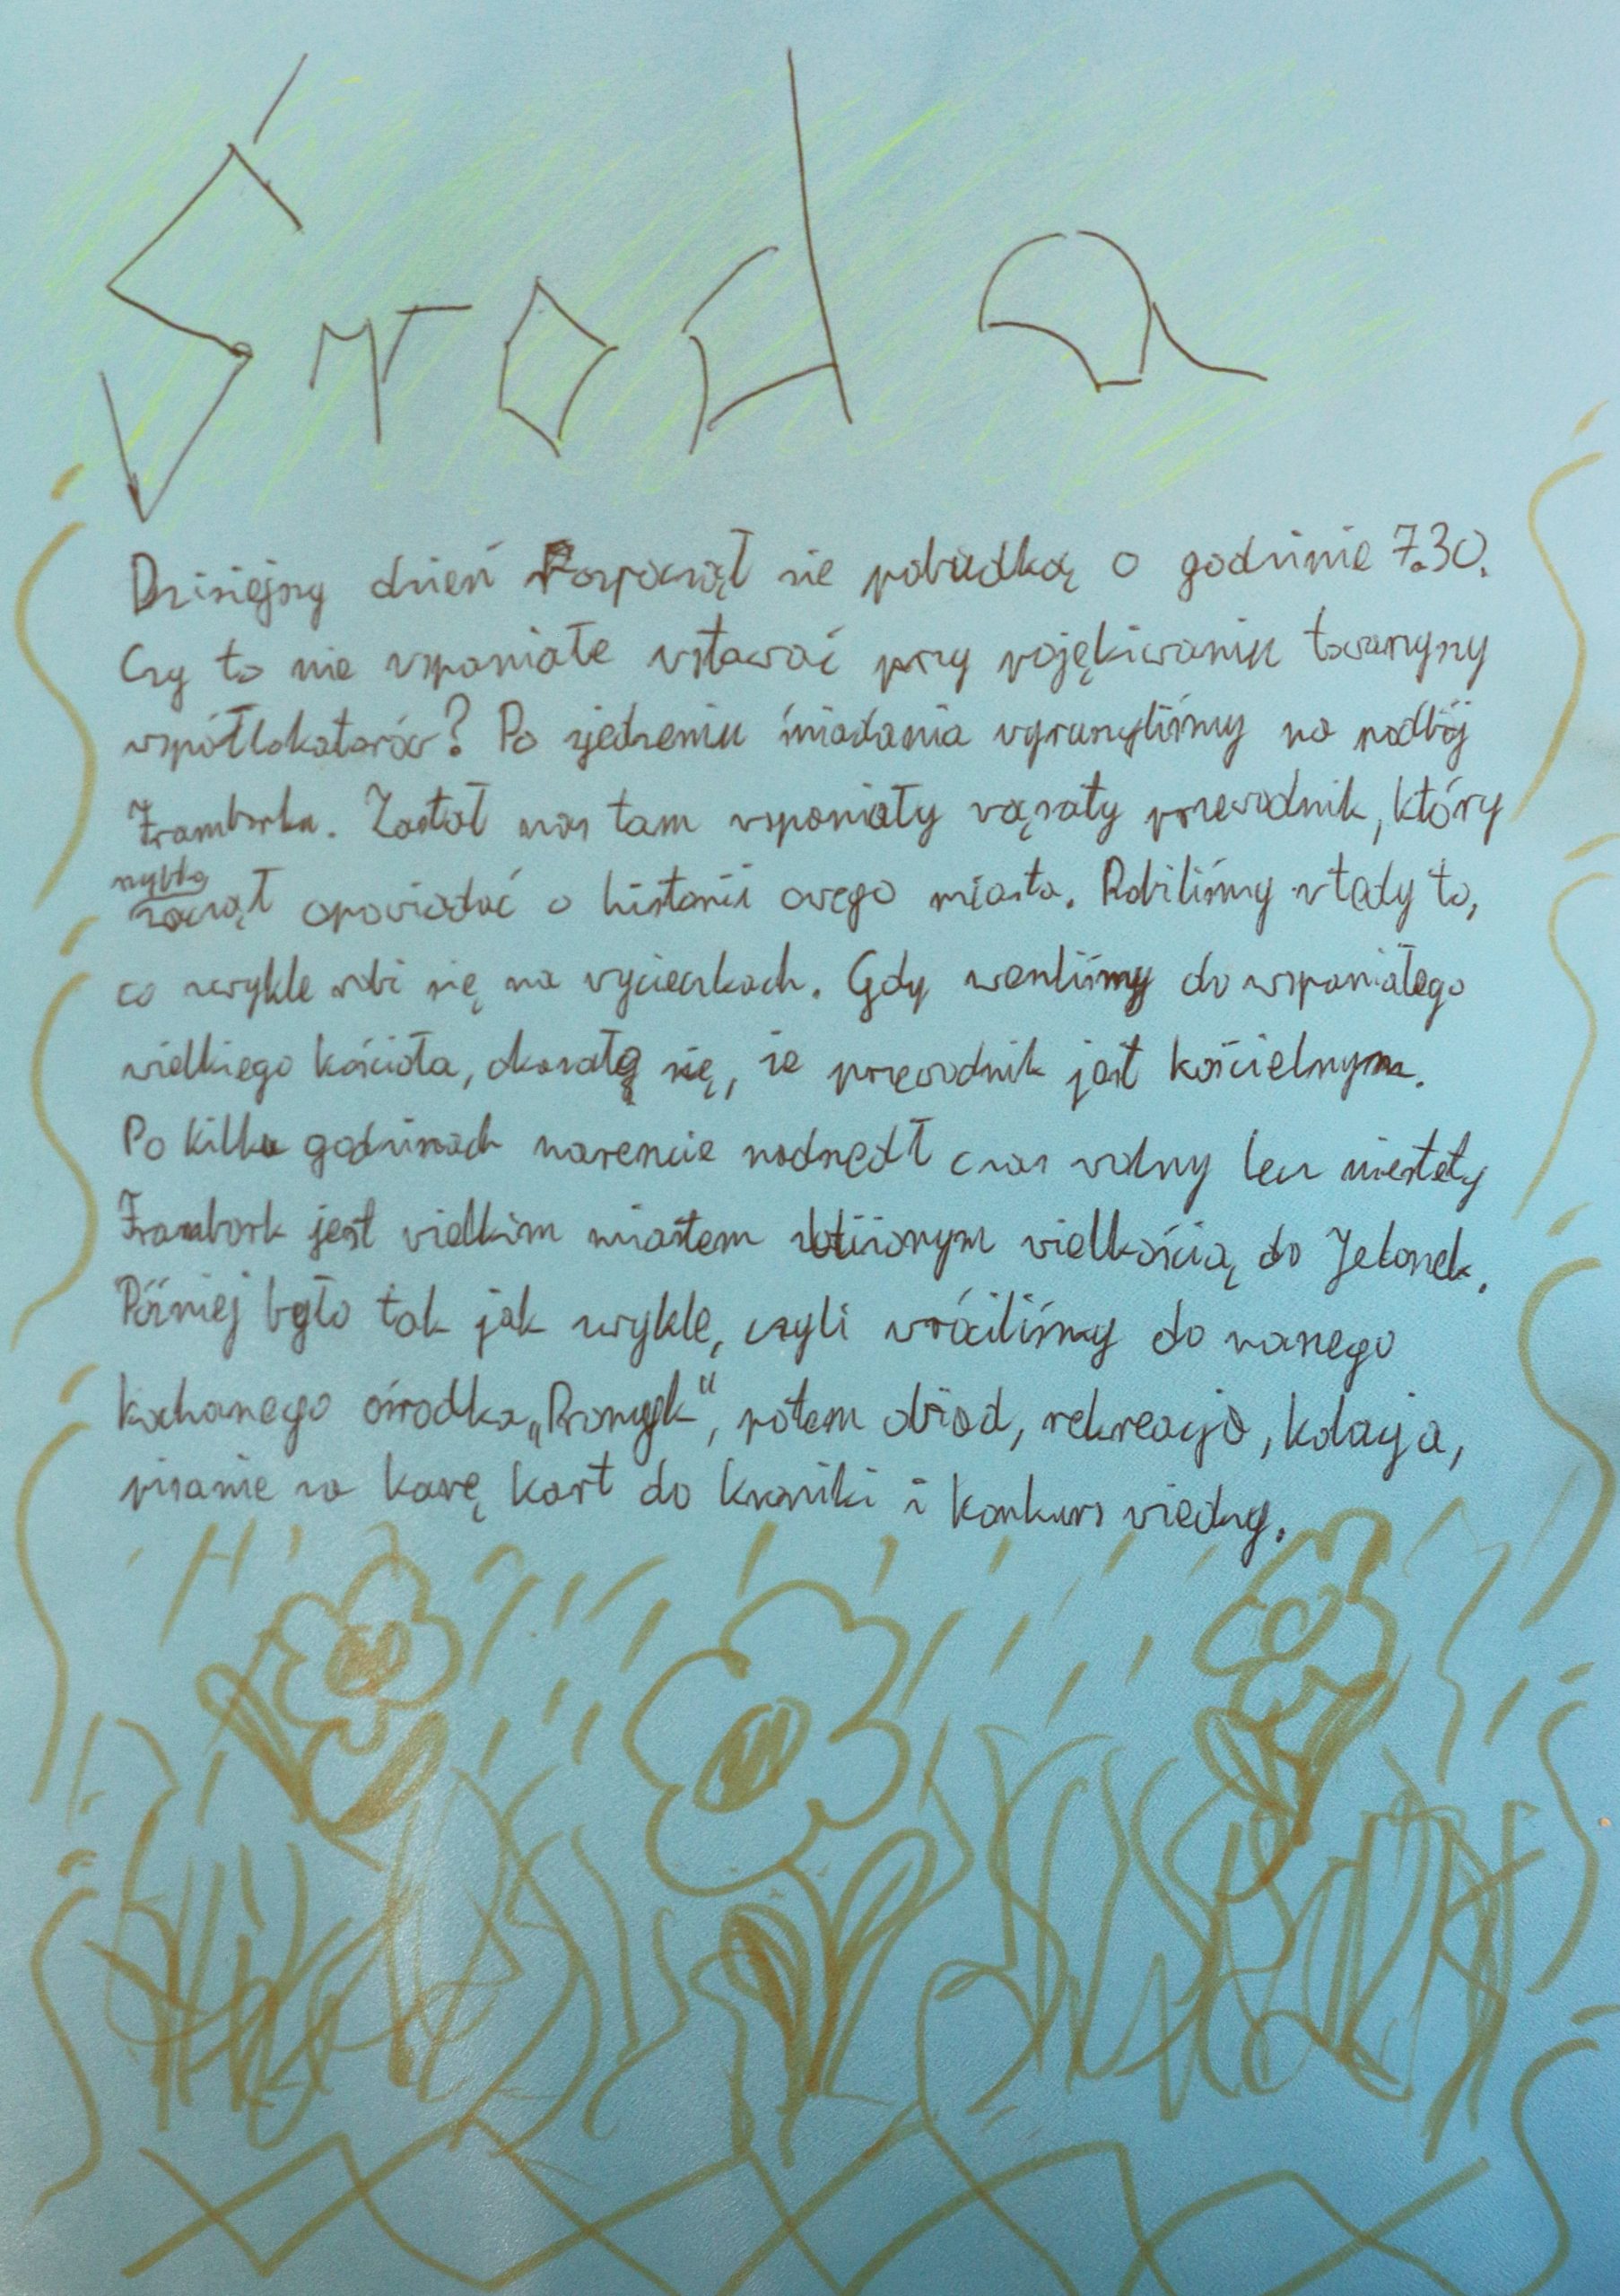 Środa
Dzisiejszy dzień Rospoczął sie pobudką o godzinie 7.30.
Czy to nie wspaniałe wstawać przy pojękiwaniu towarzyszy
współlokatorów? Po zjedzeniu śniadania wyruszyliśmy na podbój
Fromborka. Zastał nas tam wspaniały wąsaty przewodnik, który
szybko
zaczął opowiadać o historii owego miasta. Robiliśmy wtedy to,
co zwykle robi się na wycieczkach. Gdy weszliśmy do wspaniałego
wielkiego kościoła, okazało się, że przewodnik jest kościelnym.
Po kilku godzinach nareszcie nadszedł czas wolny lecz niestety
Frombork jest wielkim miastem zbliżonym wielkością do Jelonek.
Później było tak jak zwykle, czyli wróciliśmy do naszego
kochanego ośrodka „Promyk", potem obiad, rekreacja, kolacja,
pisanie za karę kart do kroniki i konkurs wiedzy.